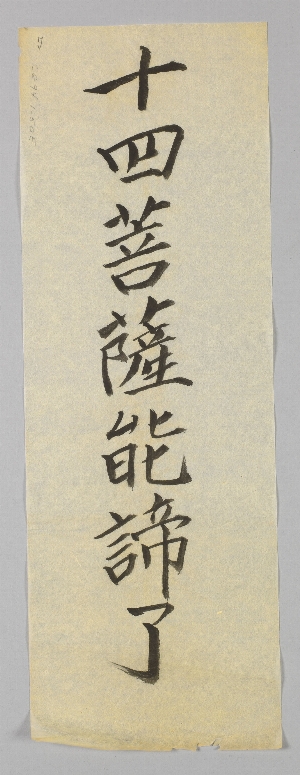 十四菩薩能諦了